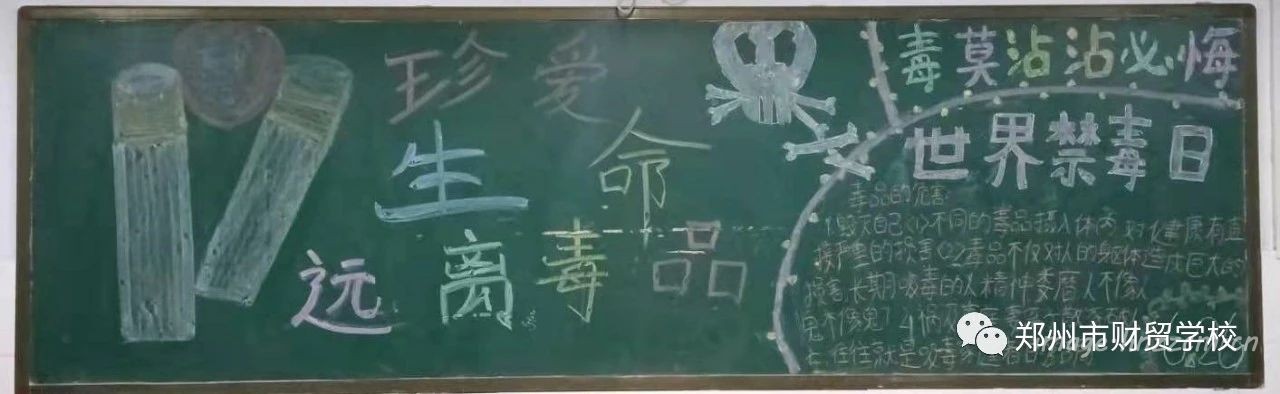 珍爱
生命
远离毒品
毒莫沾沾必悔
世界禁毒日
毒品的危害
1.毁灭自己(1)不同的毒品摄入体内 对健康有直
接严重的损害(2)毒品不仅对人的躯体造成巨大的
损害,长期吸毒的人精神萎靡人不像人
鬼不像鬼
往往就是吸毒
郑州市财贸学校